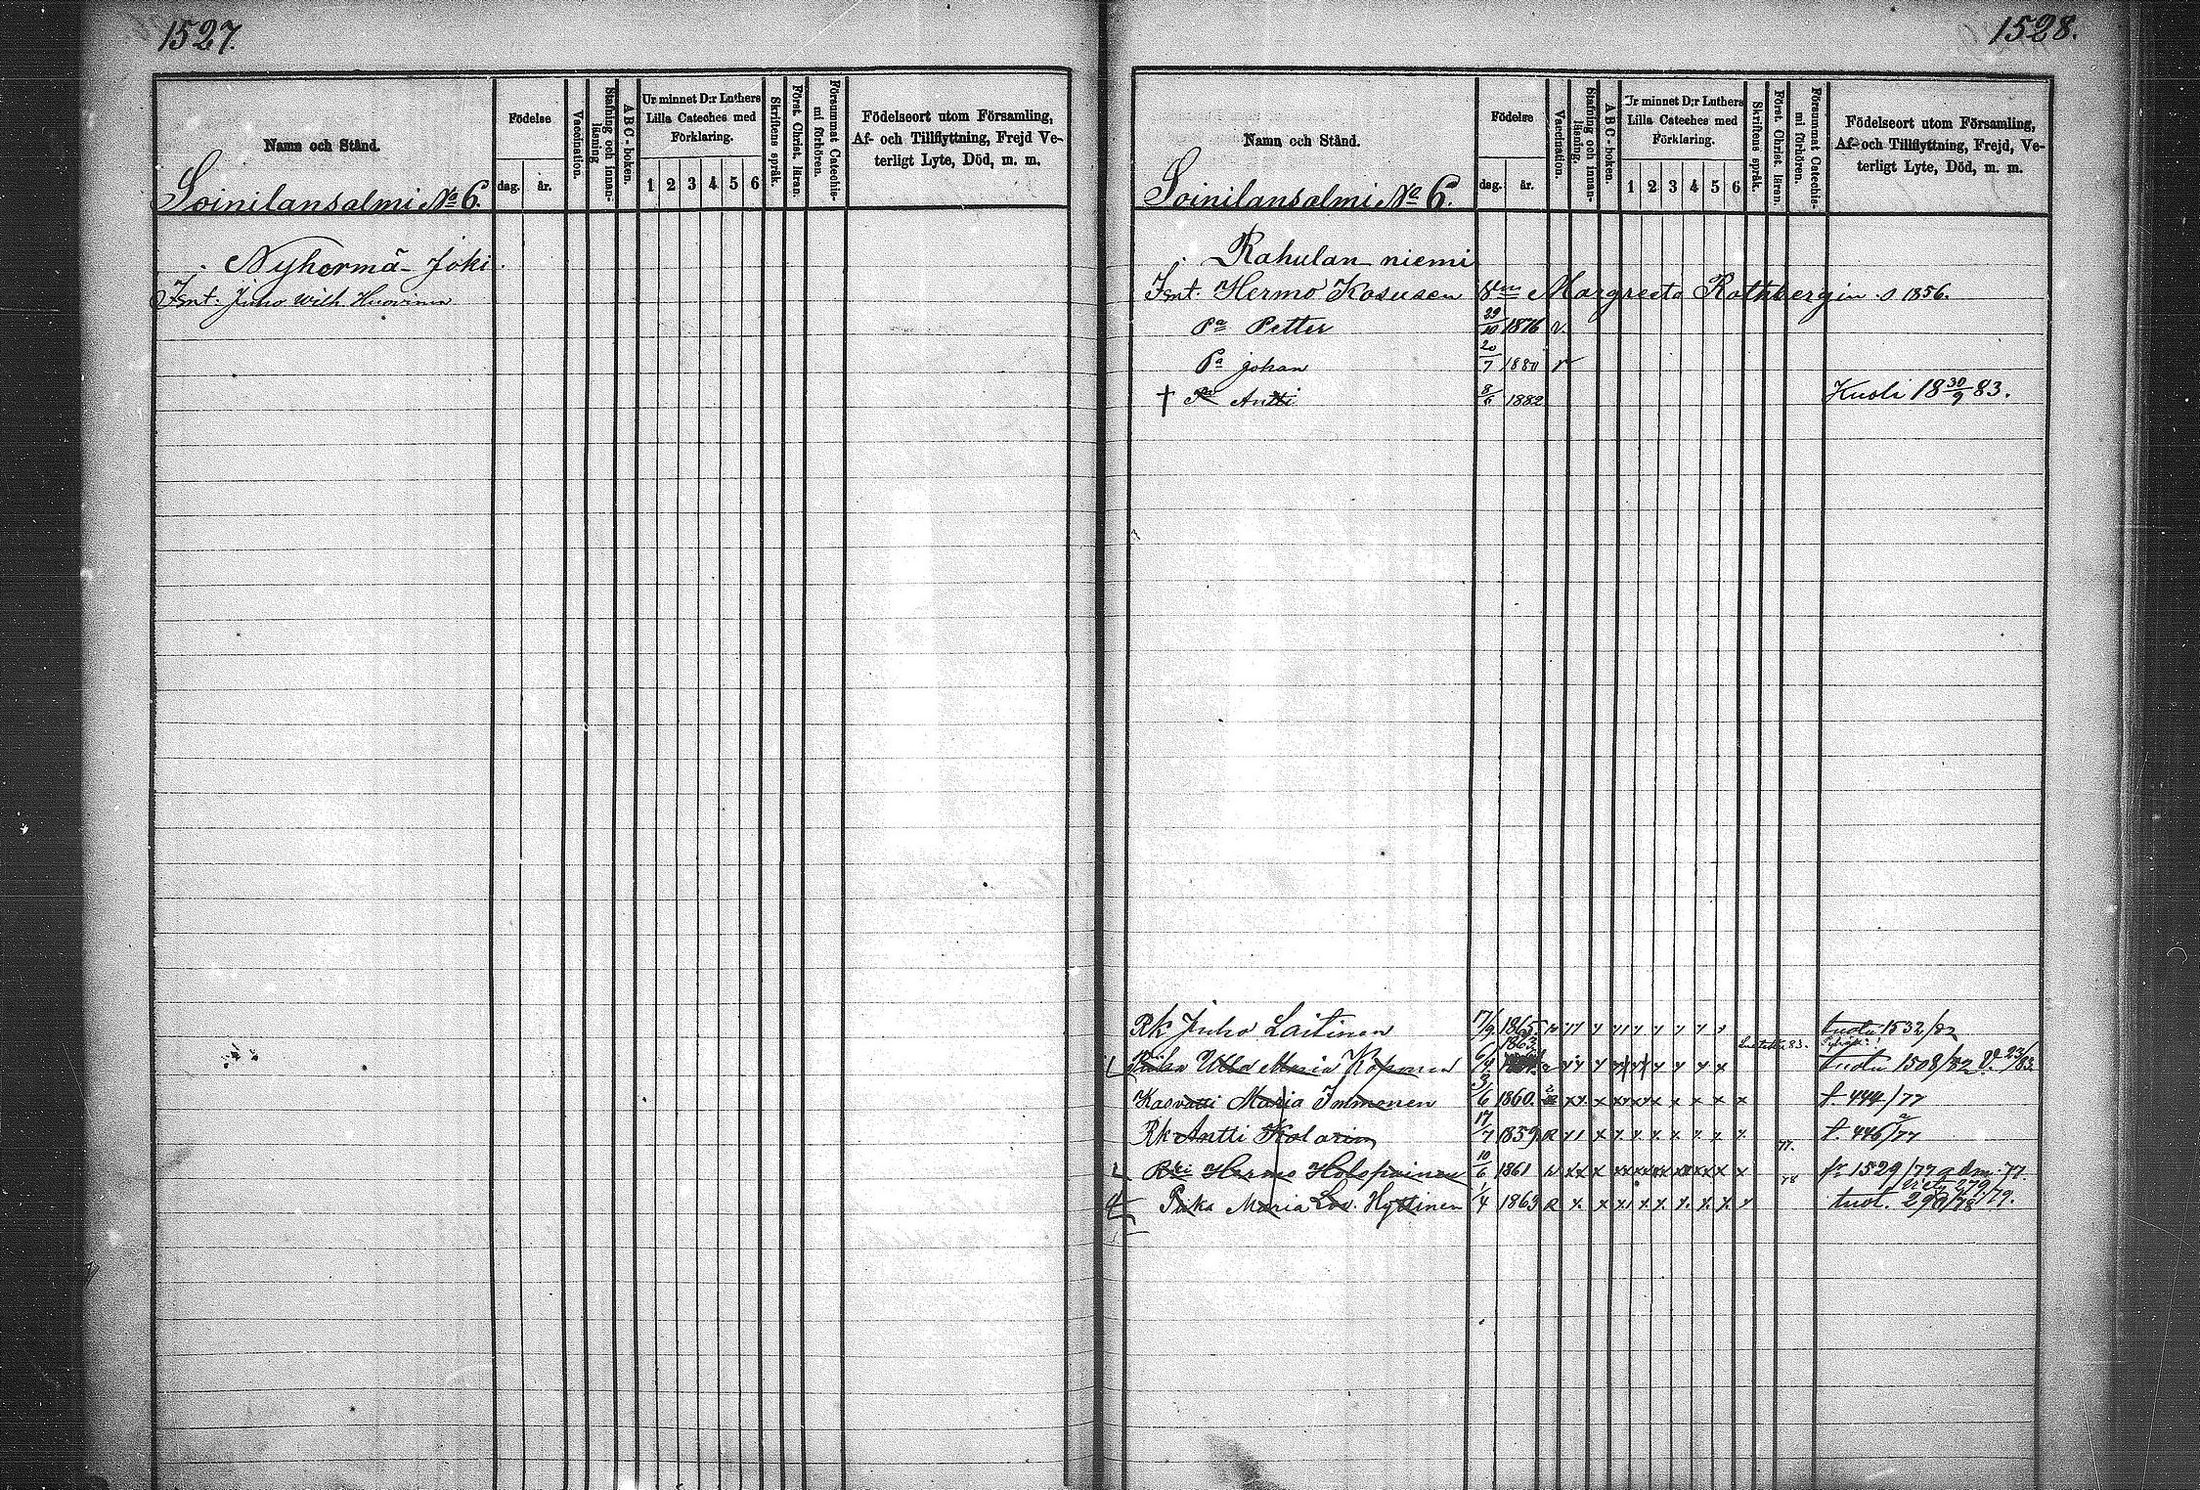 1527.
Namn och Stånd.
Födelse
dag.
år.
Vaccination.
Stafning och innan-
läsning
ABC-boken.
Ur minnet D:r Luthers
Lilla Cateches med
Förklaring.
1 2 3 4 5 6
Skriftens språk.
Först. Christ. läran.
Försummat Catechis-
mi förhören.
Födelseort utom Församling,
Af- och Tillflyttning, Frejd Ve-
terligt Lyte, Död, m. m.
Soinilansalmi No 6.
Nyhermä-Joki.
Juho Wilh. Huovinen
1528.
Namn och Stånd.
Födelse
dag.
år.
Vaccination.
Stafning och innan-
läsning.
ABC-boken.
Ur minnet D:r Luthers
Lilla Cateches med
Förklaring.
1 2 3 4 5 6
Skriftens språk.
Först. Christ. lären.
Försummat Cateche-
mi förhören.
Födelseort utom Församling,
Af- och Tillflyttning, Frejd, Ve-
terligt Lyte, Död, m. m.
Soinilansalmi No 6.
Rahulan niemi
Hermo Kosusen Margreeta Rothbergin s 1856.
Pa Petter 29/10 1876 v
Pa Johan 20/7 1880 v
† Antti 8/6 1882 Kuoli 18 30/9 83.
Rk Juho Laitinen 17/9 1865. tuotu 1532/82
Piika Ulla Maria Koponen 6/4 1863 tuotu 1508/82 23/83
Kasvatti Maria Immonen 3/6 1860. f. 444/77
Rk Antti Kolarinen 17/7 1859 R f. 446/77
77.
Rki Hermo Holopainen 10/6 1861 78 fr 1529/77 adm. 77.
Piika Maria Lov. Hyttinen 1/4 1863 R tuot. 290/78 viety 279/79.